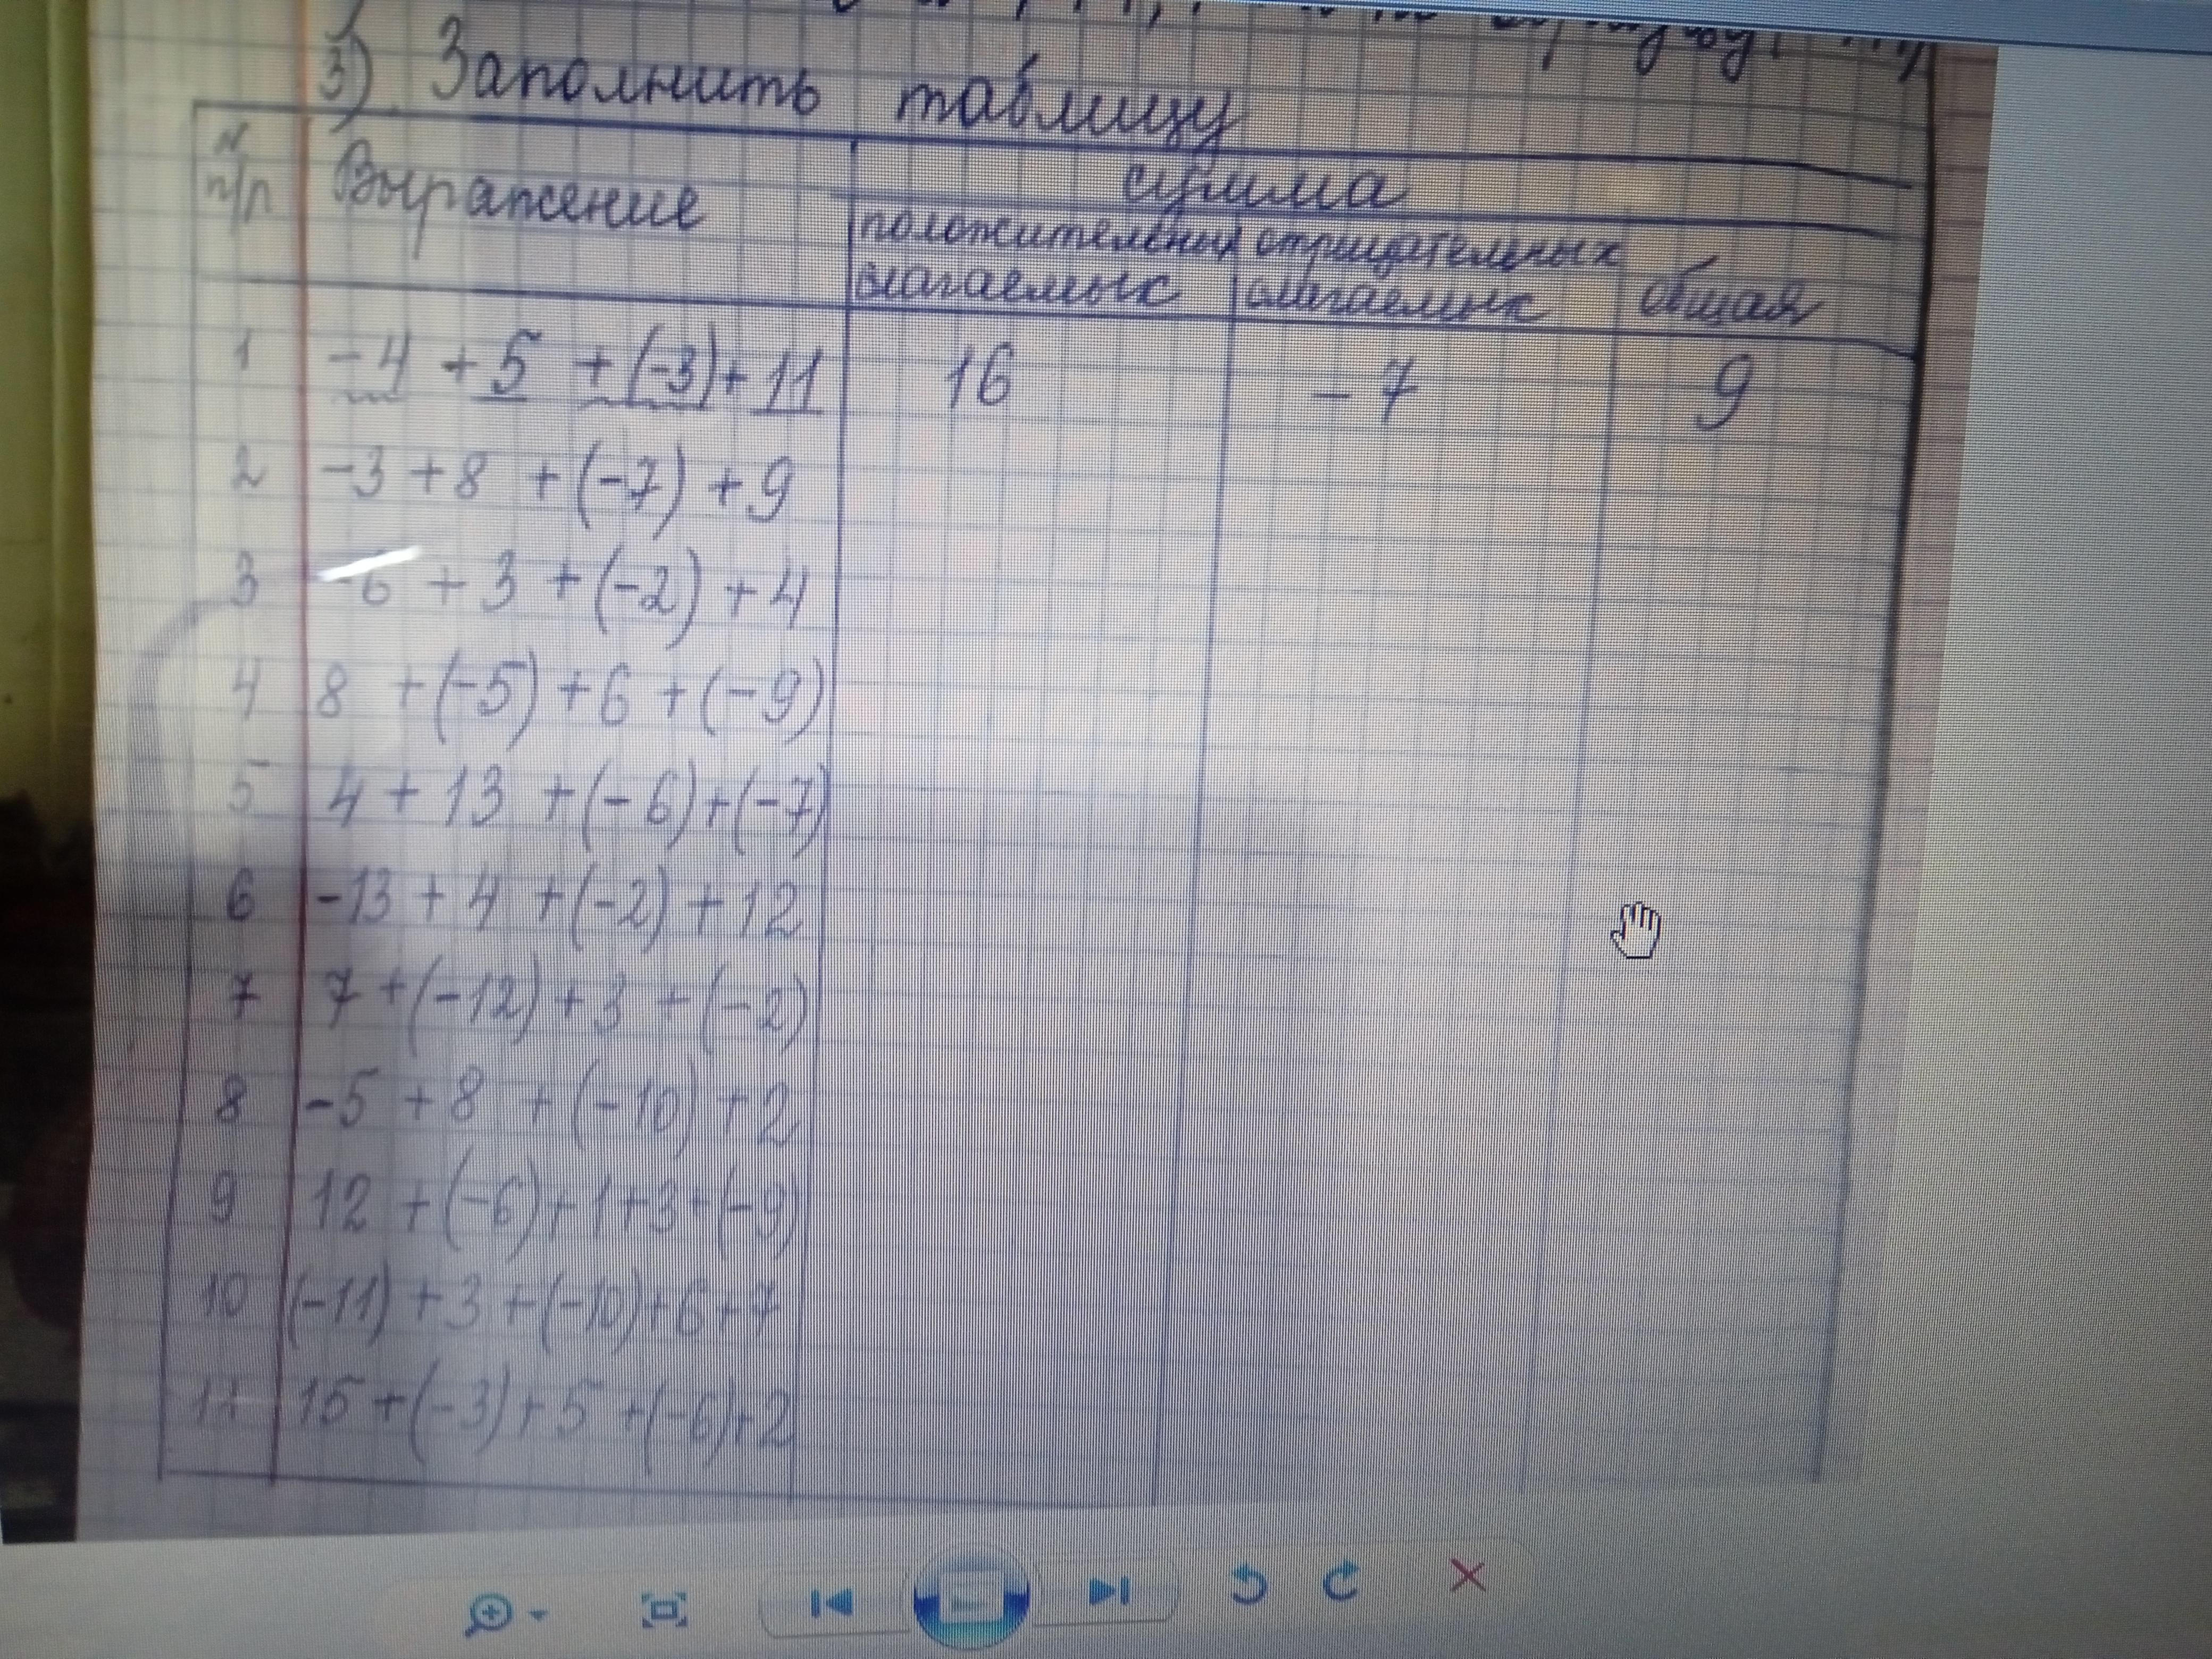 3) Заполнить таблицу
N п/п Выражение сумма
положительных слагаемых отрицательных слагаемых общая
1 -4 + 5 + (-3) + 11 16 -7 9
2 -3 + 8 + (-7) + 9
3 -6 + 3 + (-2) + 4
4 8 + (-5) + 6 + (-9)
5 4 + 13 + (-6) + (-7)
6 -13 + 4 + (-2) + 12
7 7 + (-12) + 3 + (-2)
8 -5 + 8 + (-10) + 2
9 12 + (-6) + 1 + 3 + (-9)
10 (-11) + 3 + (-10) + 6 + 7
11 15 + (-3) + 5 + (-6) + 2